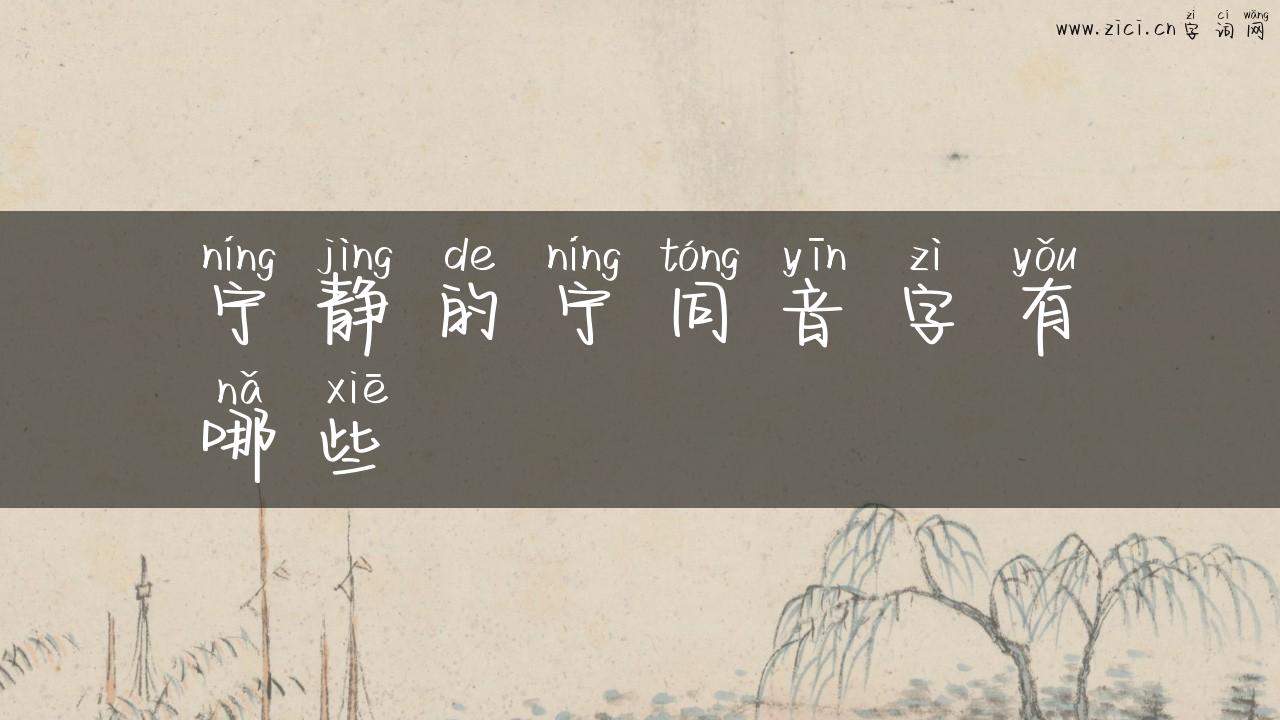 www.zici.cn 字词网
zì cí wǎng
níng jìng de níng tóng yīn zì yǒu
宁静的宁同音字有
nǎ xiē
哪些